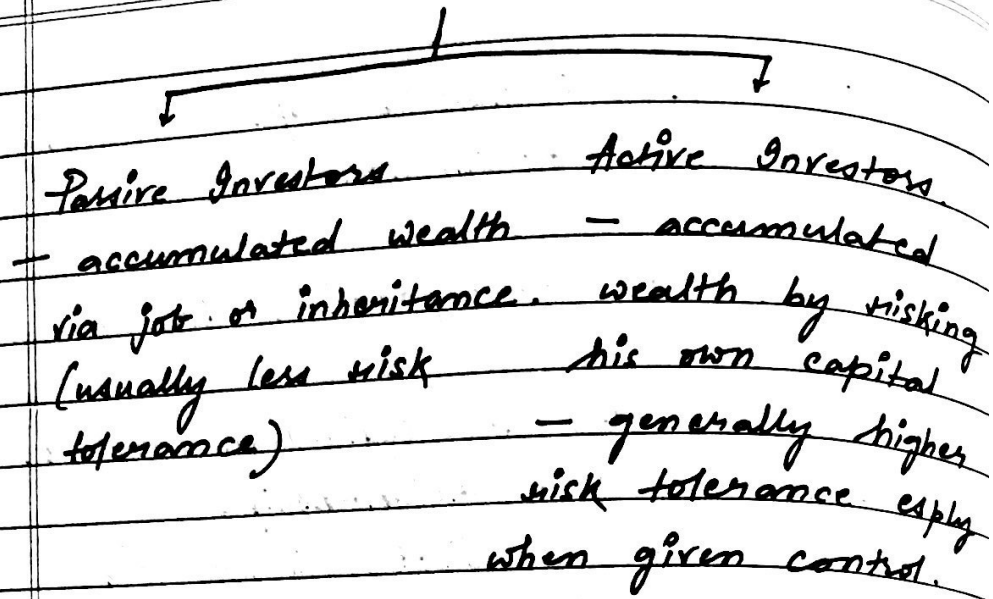 Passive Investors
- accumulated wealth
via job or inheritance.
(usually less risk
tolerance)
Active Investors.
- accumulated
wealth by risking
his own capital
- generally higher
risk tolerance esply
when given control.